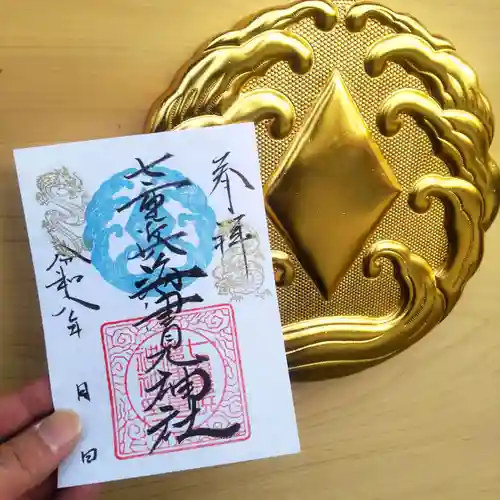 奉拝
七重浜海津見神社
令和八年
月
日